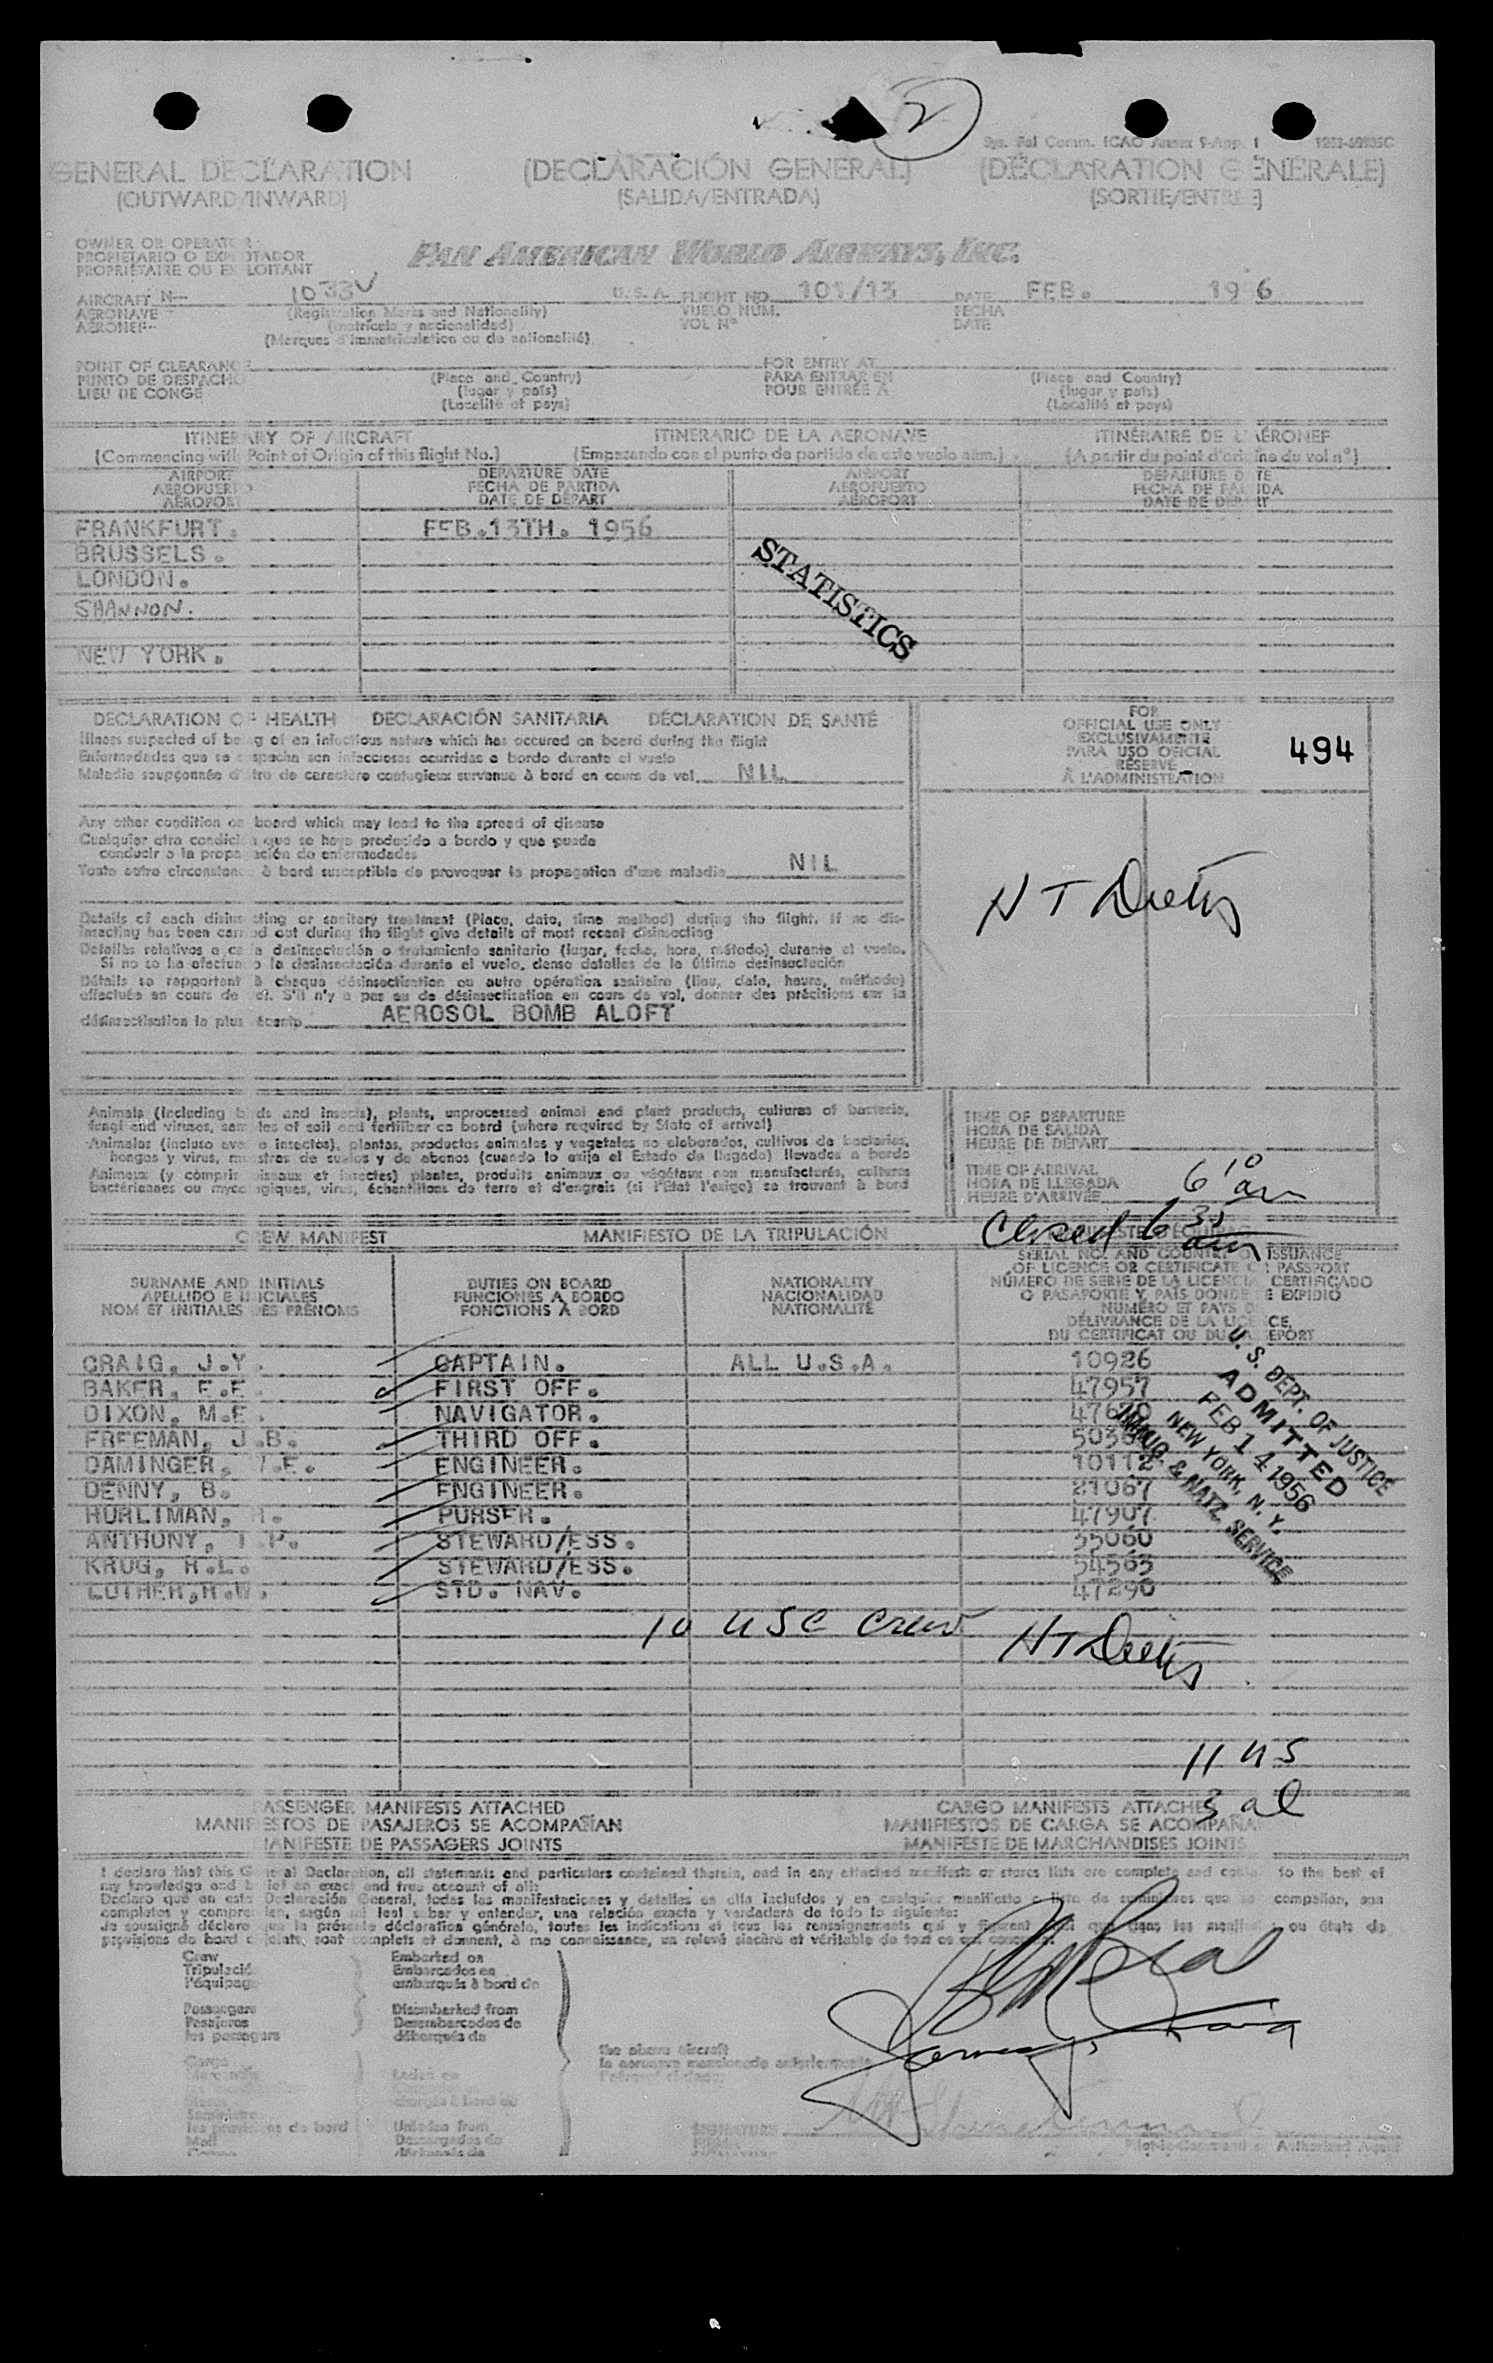 2
Sys. Fal Comm. ICAO Annex 9-App. 1
GENERAL DECLARATION (DECLARACIÓN GENERAL) (DÉCLARATION GÉNÉRALE)
(OUTWARD/INWARD) (SALIDA/ENTRADA) (SORTIE/ENTRÉE)
OWNER OR OPERATOR
PROPIETARIO O EXPLOTADOR
PROPRIÉTAIRE OU EXPLOITANT
PAN AMERICAN WORLD AIRWAYS, INC.
AIRCRAFT N— 1033V U.S.A. FLIGHT NO. 101/13 DATE FEB. 19 6
AERONAVE (Registration Marks and Nationality) VUELO NÚM. FECHA
AÉRONEF— (matrícula y nacionalidad) VOL Nº DATE
(Marques d'immatriculation ou de nationalité)
POINT OF CLEARANCE FOR ENTRY AT
PUNTO DE DESPACHO (Place and Country) PARA ENTRAR EN (Place and Country)
LIEU DE CONGÉ (lugar y país) POUR ENTRÉE À (lugar y país)
(Localité et pays) (Localité et pays)
ITINERARY OF AIRCRAFT ITINERARIO DE LA AERONAVE ITINÉRAIRE DE L'AÉRONEF
(Commencing with Point of Origin of this flight No.) (Empezando con el punto de partida de este vuelo núm.) (A partir du point d'origine du vol nº)
AIRPORT DEPARTURE DATE AIRPORT DEPARTURE DATE
AEROPUERTO FECHA DE PARTIDA AEROPUERTO FECHA DE PARTIDA
AÉROPORT DATE DE DÉPART AÉROPORT DATE DE DÉPART
FRANKFURT. FEB.13TH. 1956
BRUSSELS.
LONDON.
SHANNON.
NEW YORK.
STATISTICS
DECLARATION OF HEALTH DECLARACIÓN SANITARIA DÉCLARATION DE SANTÉ
Illness suspected of being of an infectious nature which has occured on board during the flight
Enfermedades que se sospecha sen infecciosas ocurridas a bordo durante el vuelo
Maladie soupçonnée d'être de caractère contagieux survenue à bord en cours de vol NIL
FOR
OFFICIAL USE ONLY
EXCLUSIVAMENTE
PARA USO OFICIAL
RÉSERVÉ
À L'ADMINISTRATION
494
Any other condition on board which may lead to the spread of disease
Cualquier otra condición que se haya producido a bordo y que pueda
conducir a la propagación de enfermedades
Toute autre circonstance à bord susceptible de provoquer la propagation d'une maladie NIL
Details of each disinsecting or sanitary treatment (Place, date, time method) during the flight. If no dis-
insecting has been carried out during the flight give details of most recent disinsecting
Detalles relativos a cada desinsectación o tratamiento sanitario (lugar, fecha, hora, método) durante el vuelo.
Si no se ha efectuado la desinsectación durante el vuelo, dense detalles de la última desinsectación
Détails se rapportant à chaque désinsectisation ou autre opération sanitaire (lieu, date, heure, méthode)
effectuée en cours de vol. S'il n'y a pas eu de désinsectisation en cours de vol, donner des précisions sur la
désinsectisation la plus récente AEROSOL BOMB ALOFT
Animals (including birds and insects), plants, unprocessed animal and plant products, cultures of bacteria,
fungi and viruses, samples of soil and fertilizer on board (where required by State of arrival)
Animales (incluso aves e insectos), plantas, productos animales y vegetales no elaborados, cultivos de bacterias,
hongos y virus, muestras de suelos y de abonos (cuando lo exija el Estado de llegada) llevados a bordo
Animaux (y compris oiseaux et insectes) plantes, produits animaux ou végétaux non manufacturés, cultures
bactériennes ou mycologiques, virus, échantillons de terre et d'engrais (si l'État l'exige) se trouvant à bord
TIME OF DEPARTURE
HORA DE SALIDA
HEURE DE DÉPART
TIME OF ARRIVAL
HORA DE LLEGADA
HEURE D'ARRIVÉE 6 10 am
Closed 6 35 am
CREW MANIFEST MANIFIESTO DE LA TRIPULACIÓN
SURNAME AND INITIALS DUTIES ON BOARD NATIONALITY SERIAL NO. AND COUNTRY OF ISSUANCE
APELLIDO E INICIALES FUNCIONES A BORDO NACIONALIDAD OF LICENCE OR CERTIFICATE OR PASSPORT
NOM ET INITIALES DES PRÉNOMS FONCTIONS À BORD NATIONALITÉ NÚMERO DE SERIE DE LA LICENCIA CERTIFICADO
O PASAPORTE Y PAÍS DONDE SE EXPIDIÓ
NUMÉRO ET PAYS DE
DÉLIVRANCE DE LA LICENCE,
DU CERTIFICAT OU DU PASSEPORT
CRAIG, J.Y. CAPTAIN. ALL U.S.A. 10926
BAKER, E.E. FIRST OFF. 47957
DIXON, M.E. NAVIGATOR.
FREEMAN, J.B. THIRD OFF.
DAMINGER, .E. ENGINEER. 10112
DENNY, B. ENGINEER. 21067
HURLIMAN, PURSER. 47907
ANTHONY, .P. STEWARD/ESS. 35060
KRUG, H.L. STEWARD/ESS. 54563
LUTHER,H.W. STD. NAV. 47290
U. S. DEPT. OF JUSTICE
ADMITTED
FEB 14 1956
NEW YORK, N. Y.
IMMIG. & NATZ. SERVICE
10 USC Crew
11 US
3 al
PASSENGER MANIFESTS ATTACHED CARGO MANIFESTS ATTACHED
MANIFIESTOS DE PASAJEROS SE ACOMPAÑAN MANIFIESTOS DE CARGA SE ACOMPAÑAN
MANIFESTE DE PASSAGERS JOINTS MANIFESTE DE MARCHANDISES JOINTS
I declare that this General Declaration, all statements and particulars contained therein, and in any attached manifests or stores lists are complete and to the best of
my knowledge and belief an exact and true account of all:
Declaro que en esta Declaración General, todas las manifestaciones y detalles en ella incluídos y en cualquier manifiesto o lista de suministros que se compañan, son
completos y comprenden, según mi leal saber y entender, una relación exacta y verdadera de todo lo siguiente:
Je soussigné déclare que la présente déclaration générale, toutes les indications et tous les renseignements qui y figurent
provisions de bord sont complets et donnent, à ma connaissance, un relevé sincère et véritable de tout ce qui concerne:
Crew Embarked on
Tripulación Embarcados en
l'équipage embarqués à bord de
Passengers Disembarked from
Pasajeros Desembarcados de
les passagers débarqués de
the above aircraft
la aeronave mencionada anteriormente
Cargo
Laden on
Unladen from
Descargados de
Mail
SIGNATURE
Pilot-in-Command or Authorized Agent